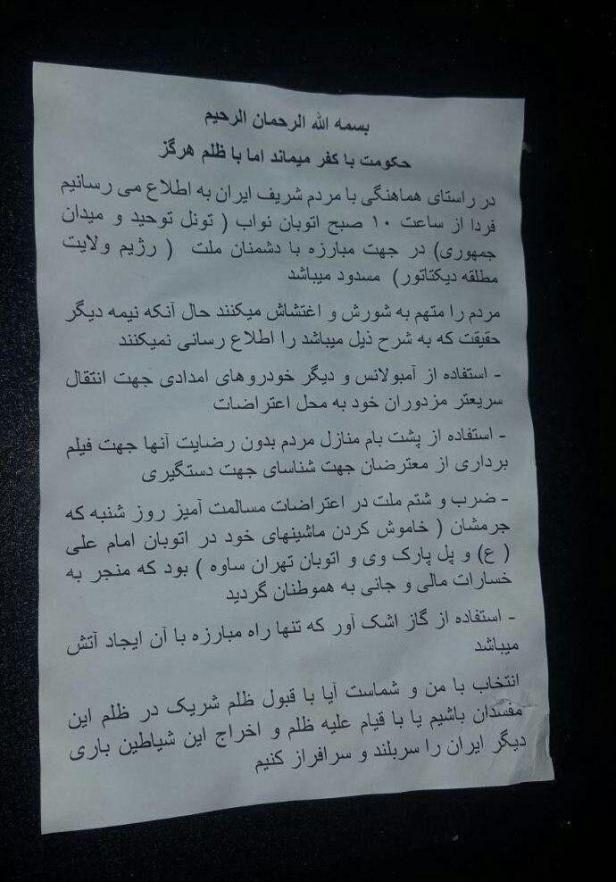 بسمه الله الرحمان الرحیم
حکومت با کفر میماند اما با ظلم هرگز
در راستای هماهنگی با مردم شریف ایران به اطلاع می رسانیم
فردا از ساعت ۱۰ صبح اتوبان نواب ( تونل توحید و میدان
جمهوری) در جهت مبارزه با دشمنان ملت ( رژیم ولایت
مطلقه دیکتاتور) مسدود میباشد
مردم را متهم به شورش و اغتشاش میکنند حال آنکه نیمه دیگر
حقیقت که به شرح ذیل میباشد را اطلاع رسانی نمیکنند
- استفاده از آمبولانس و دیگر خودروهای امدادی جهت انتقال
سریعتر مزدوران خود به محل اعتراضات
- استفاده از پشت بام منازل مردم بدون رضایت آنها جهت فیلم
برداری از معترضان جهت شناسای جهت دستگیری
- ضرب و شتم ملت در اعتراضات مسالمت آمیز روز شنبه که
جرمشان ( خاموش کردن ماشینهای خود در اتوبان امام علی
( ع) و پل پارک وی و اتوبان تهران ساوه ) بود که منجر به
خسارات مالی و جانی به هموطنان گردید
- استفاده از گاز اشک آور که تنها راه مبارزه با آن ایجاد آتش
میباشد
انتخاب با من و شماست آیا با قبول ظلم شریک در ظلم این
مفسدان باشیم یا با قیام علیه ظلم و اخراج این شیاطین باری
دیگر ایران را سربلند و سرافراز کنیم